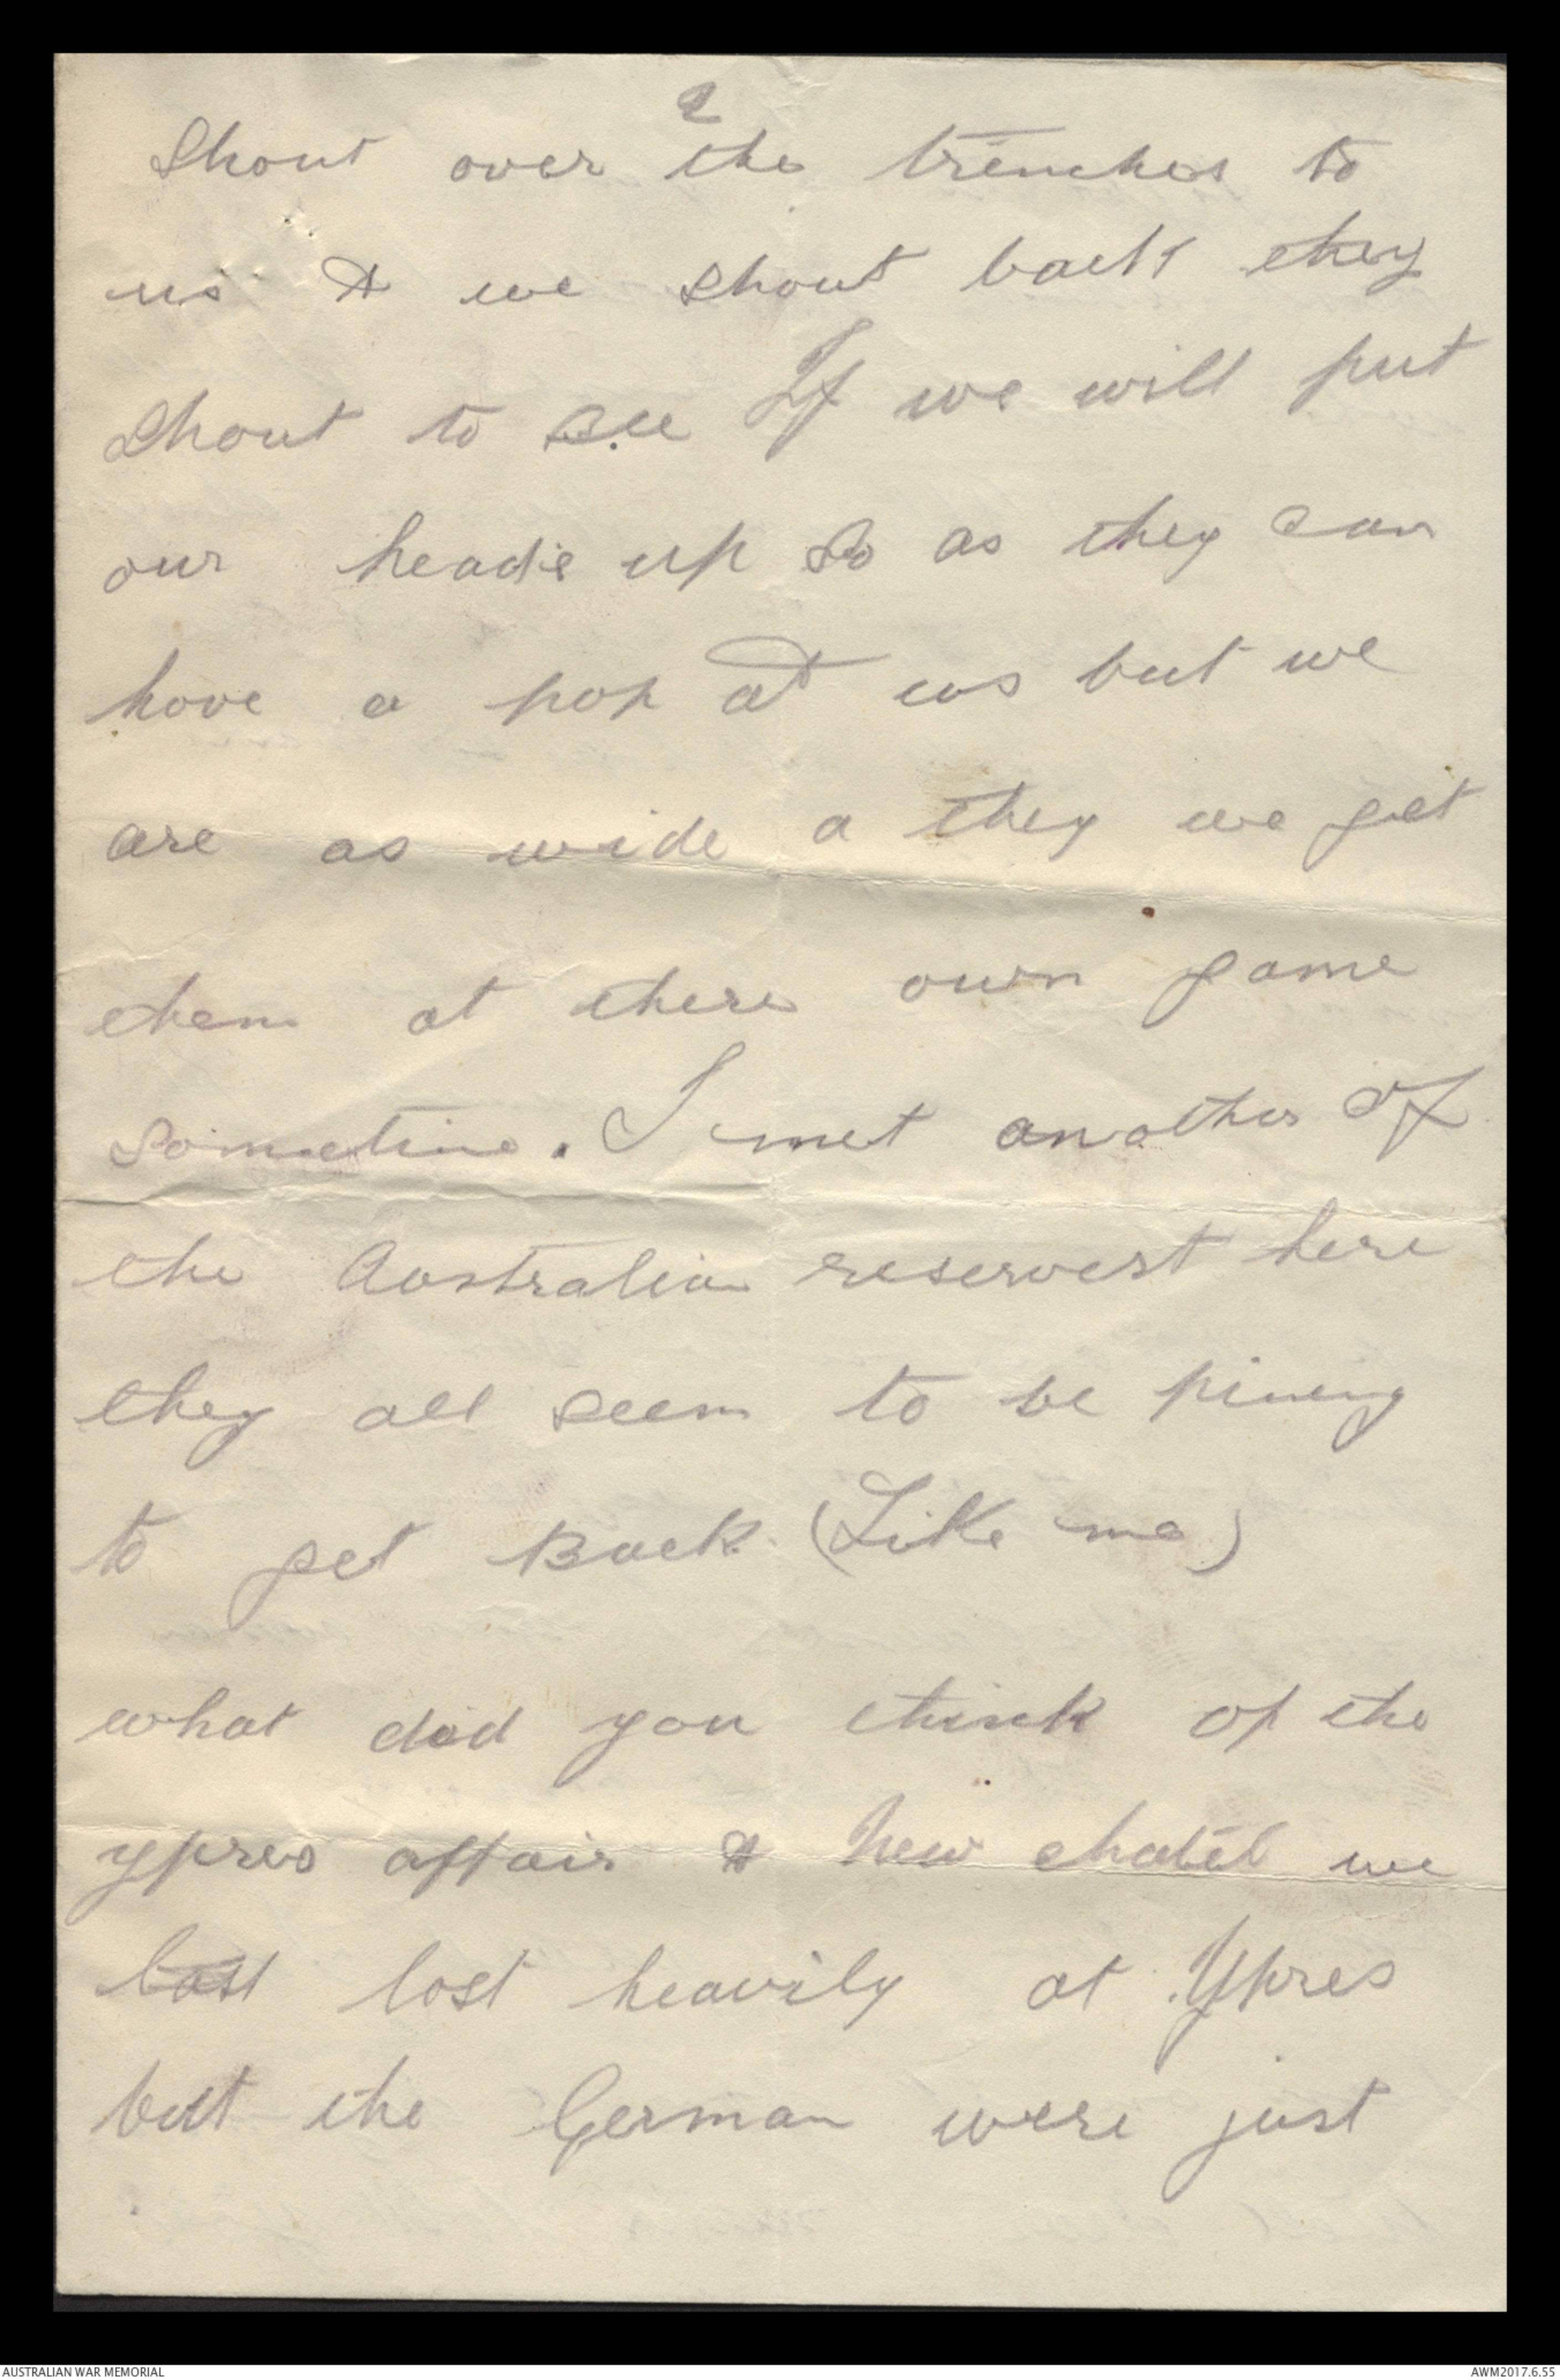 2
Shout over the trenches to
us & we shout back they
shout to see If we will put
our heads up so as they can
have a pop at us but we
are as wide a they we get
them at there own game
sometime. I met another of
the Australian reservest here
they all seem to be pining
to get Back (Like me)
what did you think of the
ypres affair & New chatel we
last lost heavily at Ypres
but the German were just
AUSTRALIAN WAR MEMORIAL AWM2017.6.55